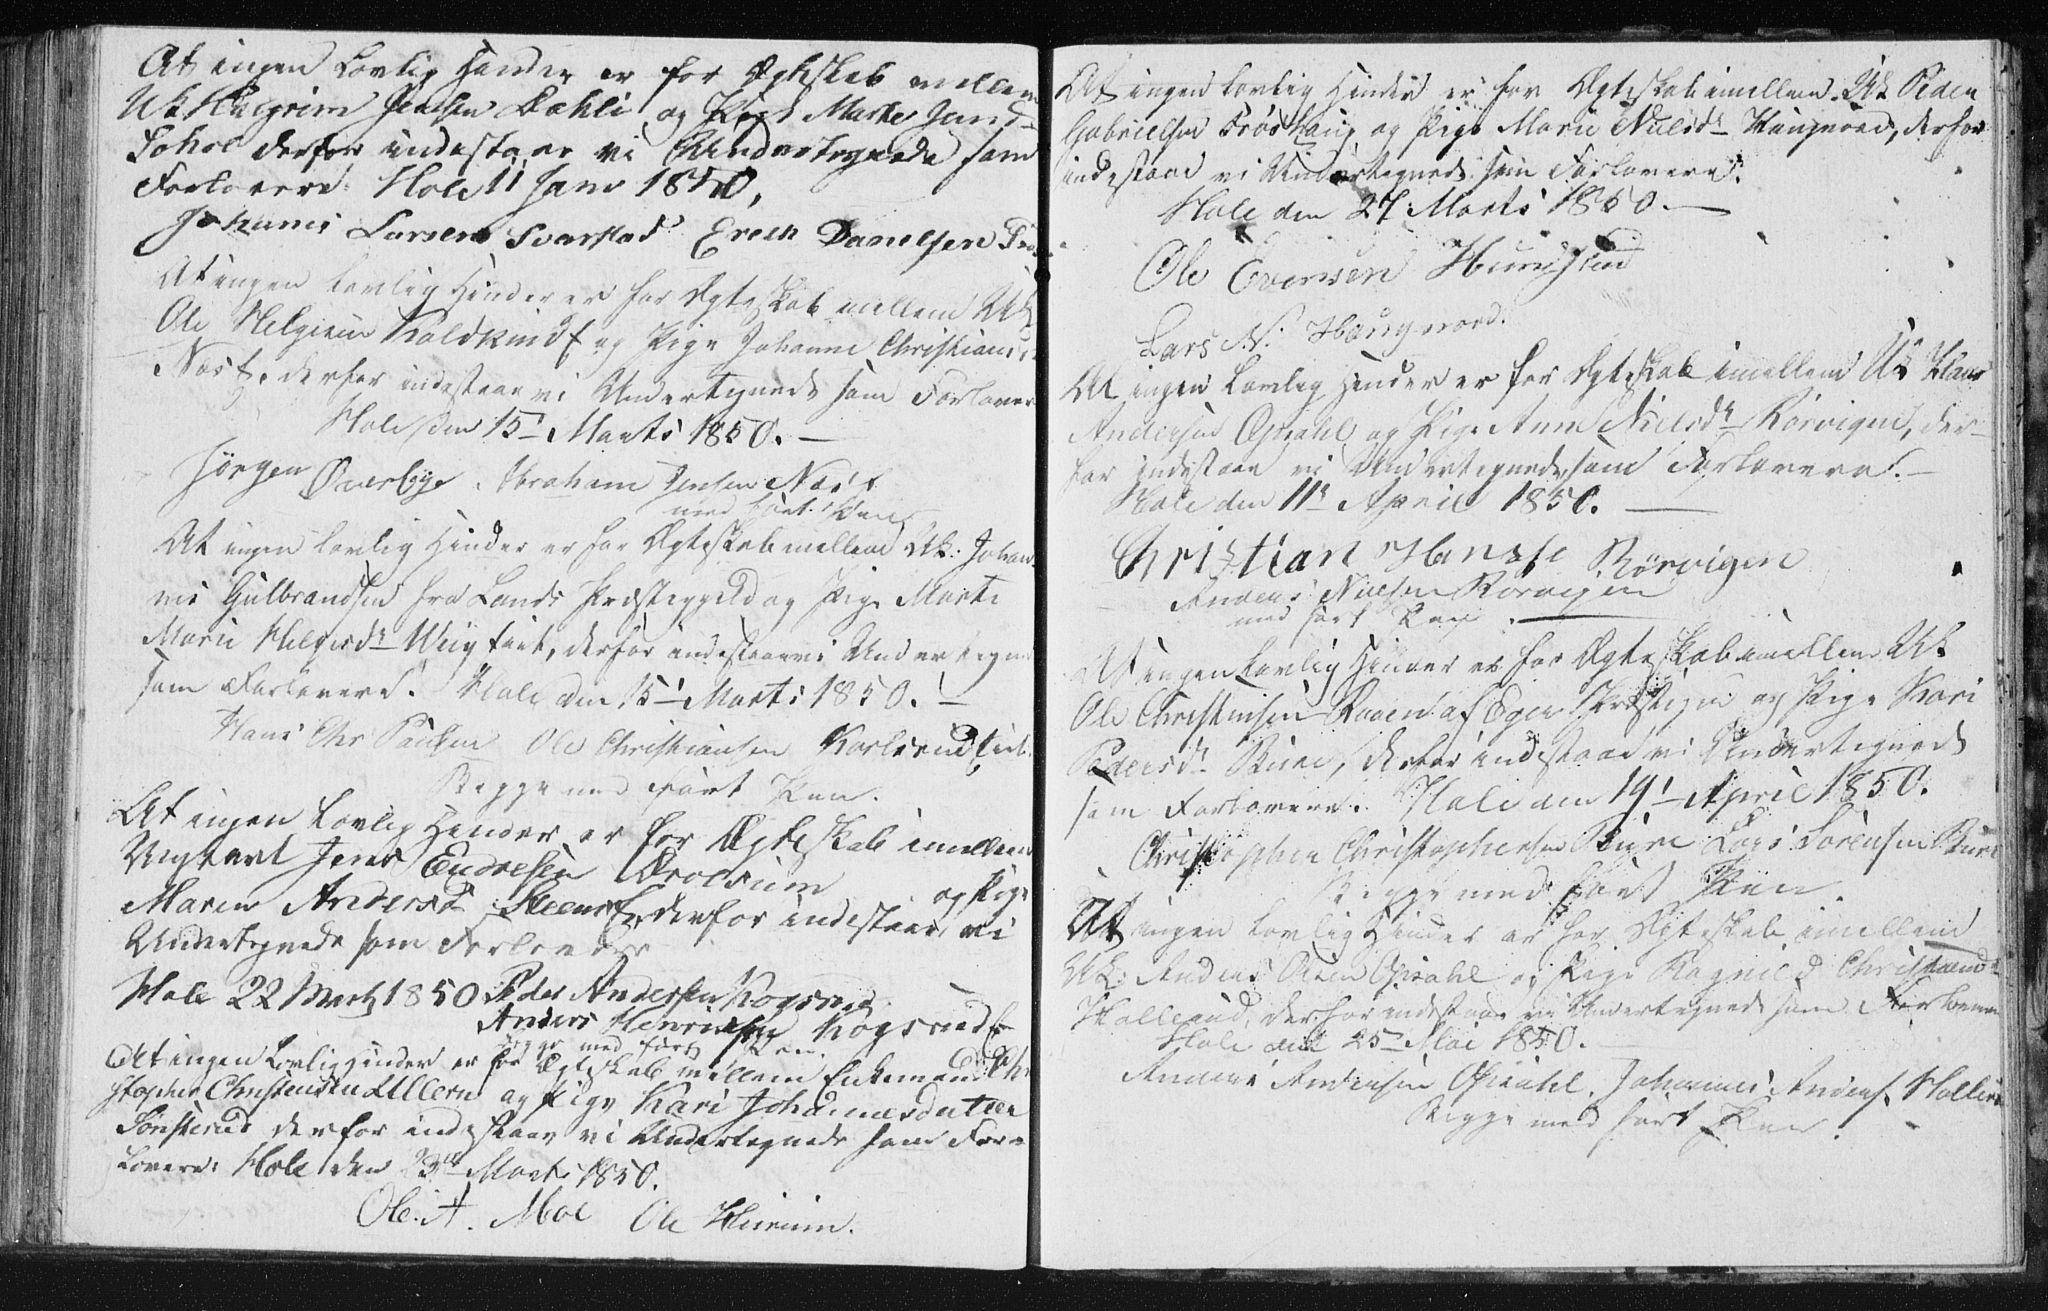 At ingen Lovlig Hinder er for Ægteskab mellem
Uk Halgrim Jensen Dæhli og Pige Marthe Jensd
Sohol derfor indestaar vi Undertegnede som
Forlovere. Hole 11 Janr 1850.
Johannis Larsen Svarstad Erick Danielsen
At ingen Lovlig Hinder er for Ægteskab mellem Uk
Ole Helgesen Koldkind og Pige Johanne Christians
Næs, derfor indestaar vi Undertegnede som Forlover
Hole den 15 Marts 1850. —
Jørgen Øverbye. Abraham Jensen Næs
med ført Pen
At ingen lovlig Hinder er for Ægteskab mellem Uk. Johan-
nis Gulbrandsen fra Lands Præstegjeld og Pige Marte
Marie Helgesdr, derfor indestaar vi Undertegn
som Forlovere. Hole den 15 Marts 1850. —
Hans Chr Paulsen Ole Christiansen Karlsrud
Begge med ført Pen.
At ingen Lovlig Hinder er for Ægteskab imellem
Ungkarl Jens Endresen Drolsum og Pige
Maren Andersd derfor indestaar vi
Undertegnede som Forlovere
Hole 22 Marts 1850 Peder Andersen Kogsrud
Anders Henriksen Kogsrud
begge med ført Pen.
At ingen Lovlig Hinder er for Ægteskab mellem Enkemand Chri
stopher Christensen Ullern og Pige Kari Johannesdatter
Sønsterud derfor indestaar vi Undertegnede som For-
lovere: Hole den 23de Marts 1850.
Ole. A. Moe Ole Hurum.
At ingen lovlig Hinder er for Ægteskab imellem Uk Peder
Gabrielsen Frøshaug og Pige Marie Nielsdr Haugnord, derfor
indestaae vi Undertegnede som Forlovere.
Hole den 27 Marts 1850. —
Ole Evensen
Lars N. Haugnord.
At ingen Lovlig Hinder er for Ægteskab imellem Uk Klaus
Andersen Opsahl og Pige Anne Nielsdr Rørvigen, der-
for indestaae vi Undertegnede som Forlovere. —
Hole den 11 April 1850. —
Christian Hansse Rørvigen
Anders Nielsen Rørvigen
med ført Pen. —
At ingen Lovlig Hinder er for Ægteskab imellem Uk
Ole Christensen af Eger Præstegjn og Pige Kari
Pedersdr Bure, derfor indestaae vi Undertegnede
som Forlovere. Hole den 19 April 1850.
Christopher Christophersen Bure Lars Sørensen Bure
Begge med ført Pen.
At ingen Lovlig Hinder er for Ægteskab imellem
Uk: Anders Olsen Opsahl og Pige Ragnild Christiansd
Hollerud, derfor indestaae vi Undertegnede som Forlovere
Hole den 25 Mai 1850. —
Anders Andersen Opsahl. Johannes Anders. Hollerud
Begge med ført Pen.